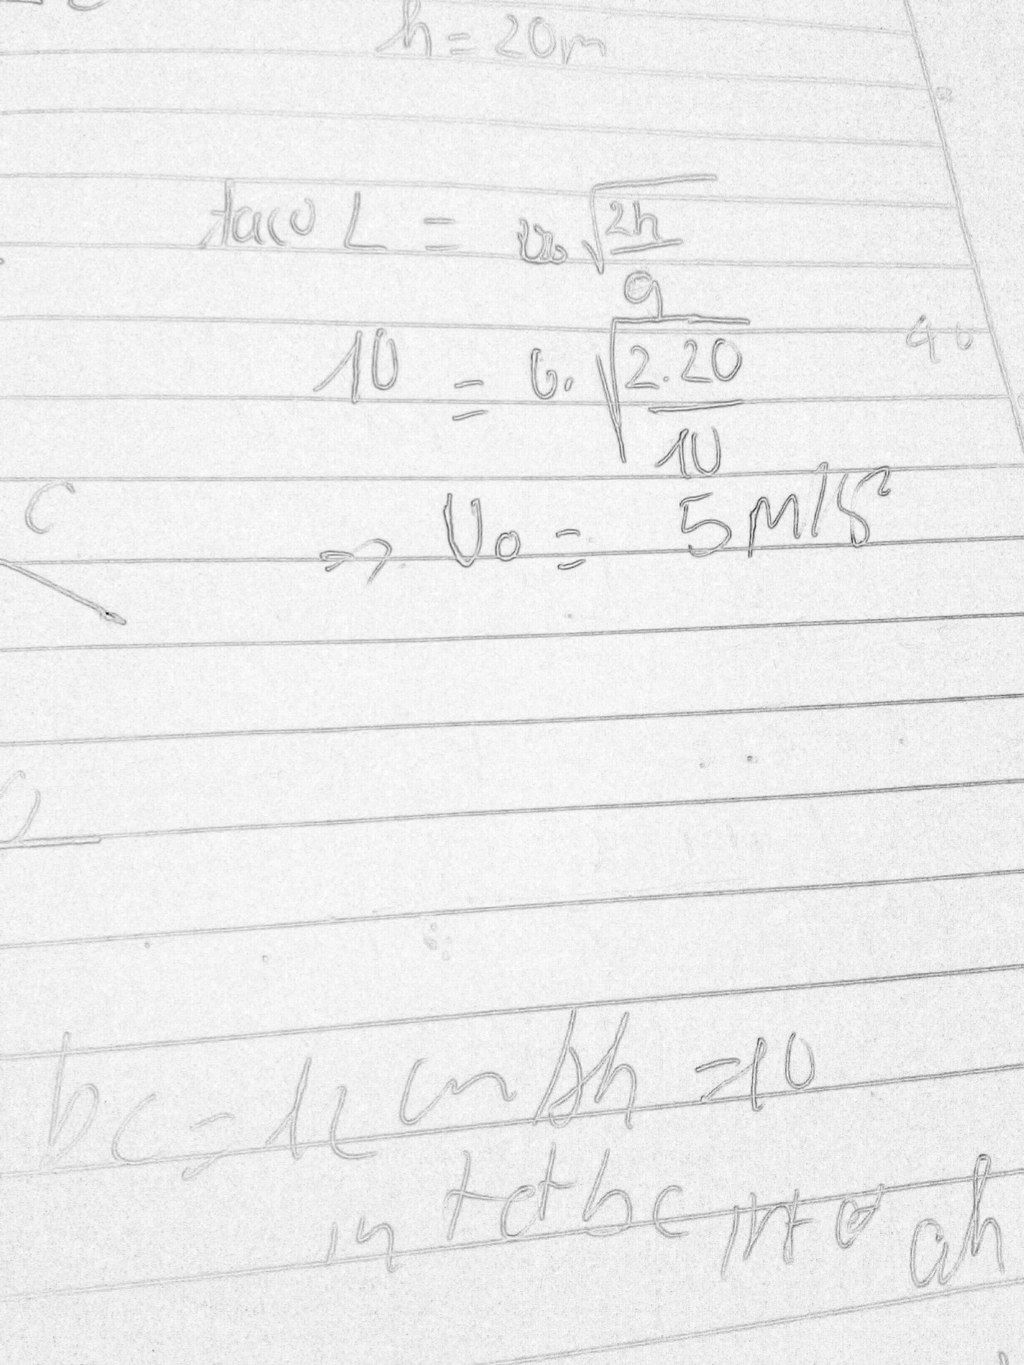 h = 20m
ta có L = v₀ √(2h/g)
10 = v. √(2.20/10)
40
C
=> V₀ = 5 m/s²
bc = 12 cm Ah = 10
in t d t bc
ah